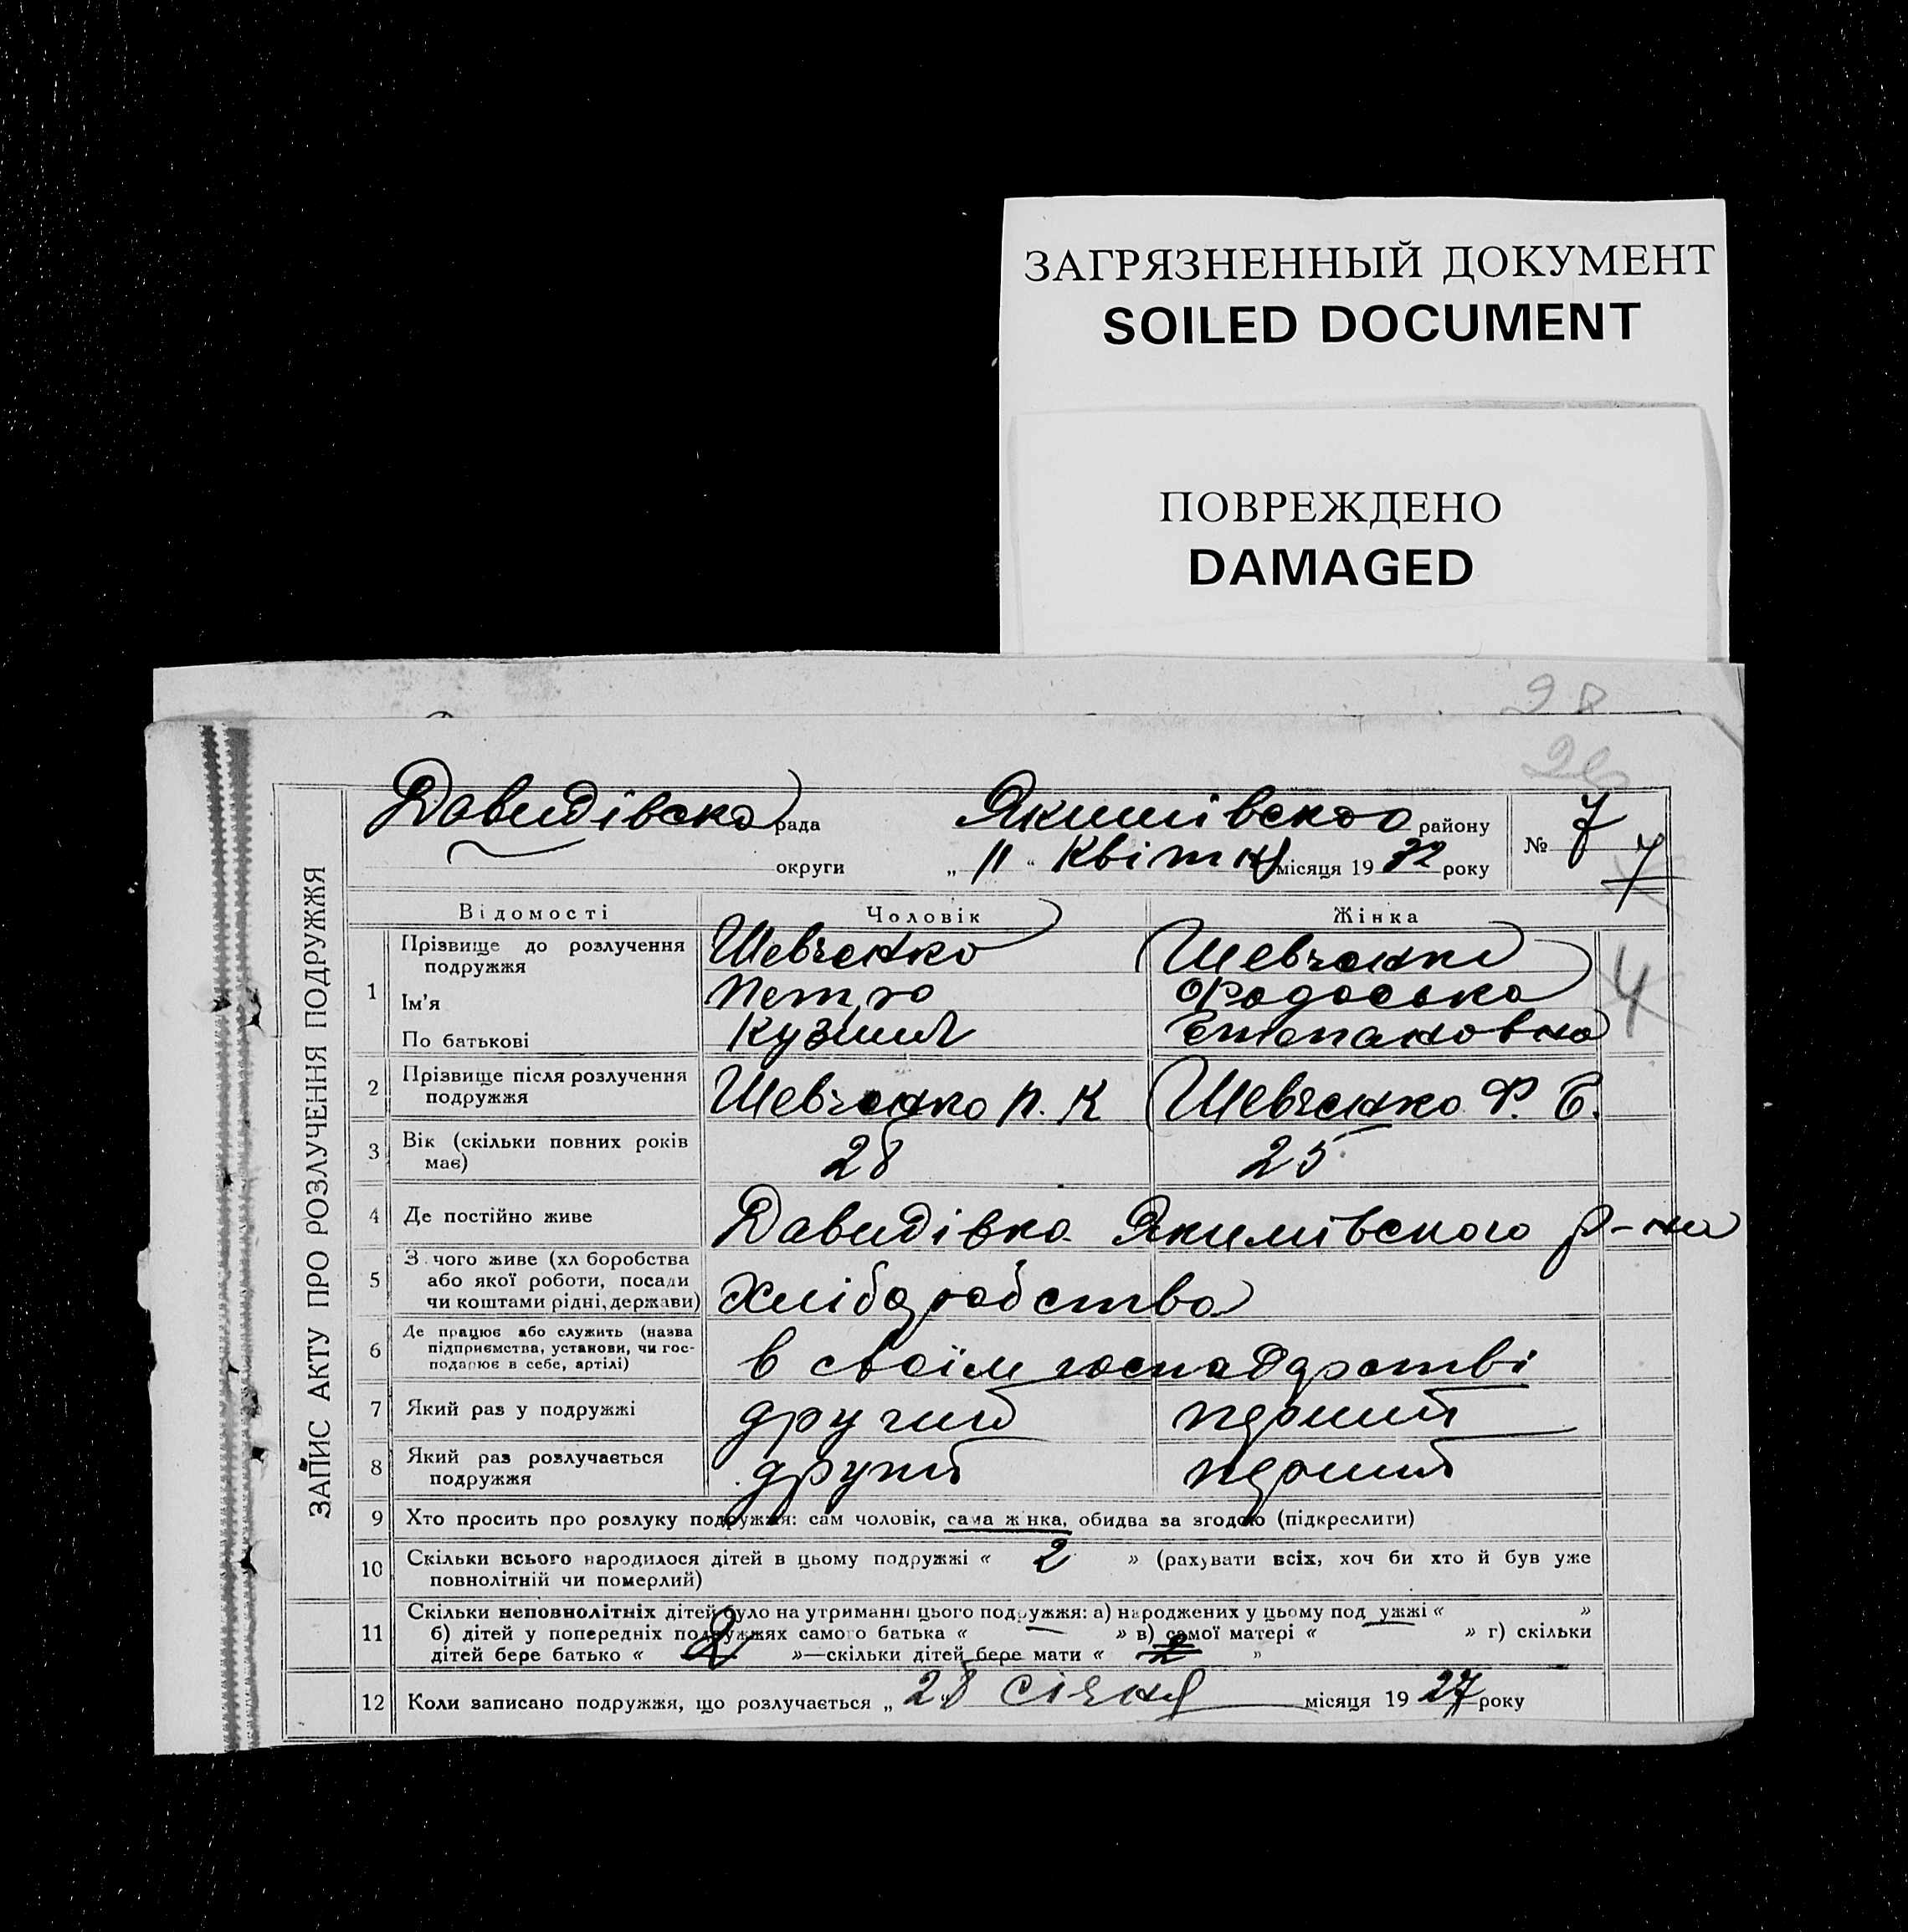 ЗАГРЯЗНЕННЫЙ ДОКУМЕНТ
SOILED DOCUMENT
ПОВРЕЖДЕНО
DAMAGED
28
ЗАПИС АКТУ ПРО РОЗЛУЧЕННЯ ПОДРУЖЖЯ
Давидівська рада Якимівського району № 7
округи „ 11 “ Квітня місяця 19 32 року 7
Відомості Чоловік Жінка
1 Прізвище до розлучення подружжя Шевченко Шевченко 4
Ім’я Петро Федоська
По батькові Кузмич Степановна
2 Прізвище після розлучення подружжя Шевченко П. К Шевченко Ф. С.
3 Вік (скільки повних років має) 28 25
4 Де постійно живе Давидівка Якимівського р-на
5 З чого живе (хл боробства або якої роботи, посади чи коштами рідні, держави) Хліборобство
6 Де працює або служить (назва підприємства, установи, чи господарює в себе, артілі) в своїм господарстві
7 Який раз у подружжі другий перший
8 Який раз розлучається подружжя другий перший
9 Хто просить про розлуку подружжя: сам чоловік, сама ж нка, обидва за згодою (підкреслити)
10 Скільки всього народилося дітей в цьому подружжі « 2 » (рахувати всіх, хоч би хто й був уже
повнолітній чи померлий)
11 Скільки неповнолітніх дітей було на утриманні цього подружжя: а) народжених у цьому под ужжі « »
б) дітей у попередніх подружжях самого батька « » в) самої матері « » г) скільки
дітей бере батько « 2 »—скільки дітей бере мати « 2 »
12 Коли записано подружжя, що розлучається „ 28 січня місяця 19 27 року